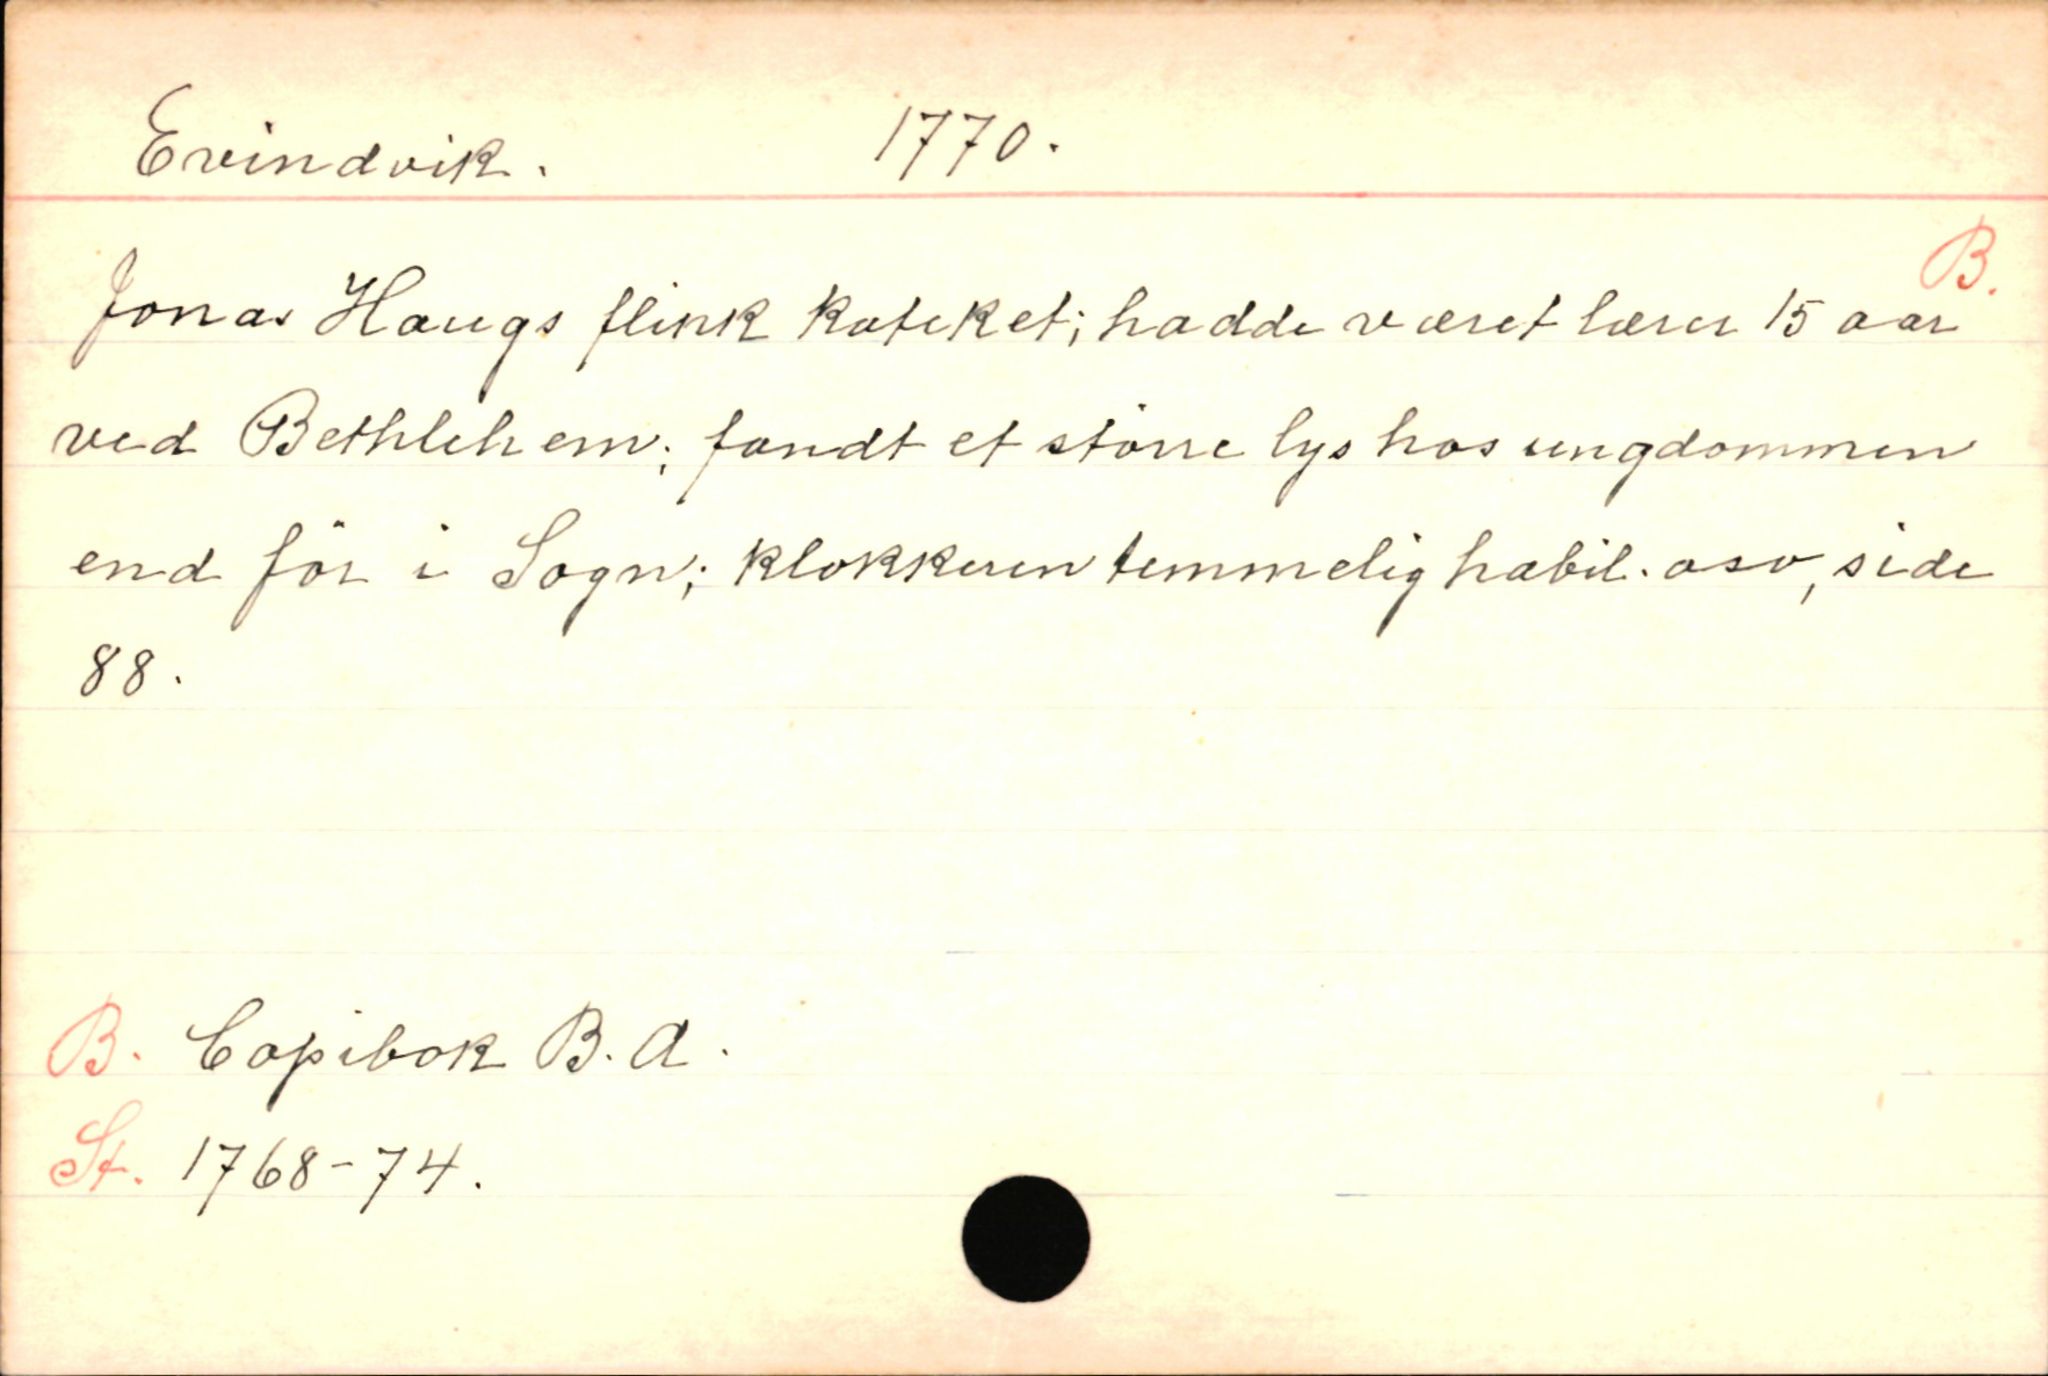 Evindvik. 1770.
B.
Jonas Haugs flink kateket; hadde været lærer 15 aar
ved Bethlehem; fandt et större lys hos ungdommen
end för i Sogn; klokkeren temmelig habil. osv, side
88.
B. Copibok B. A.
St. 1768-74.